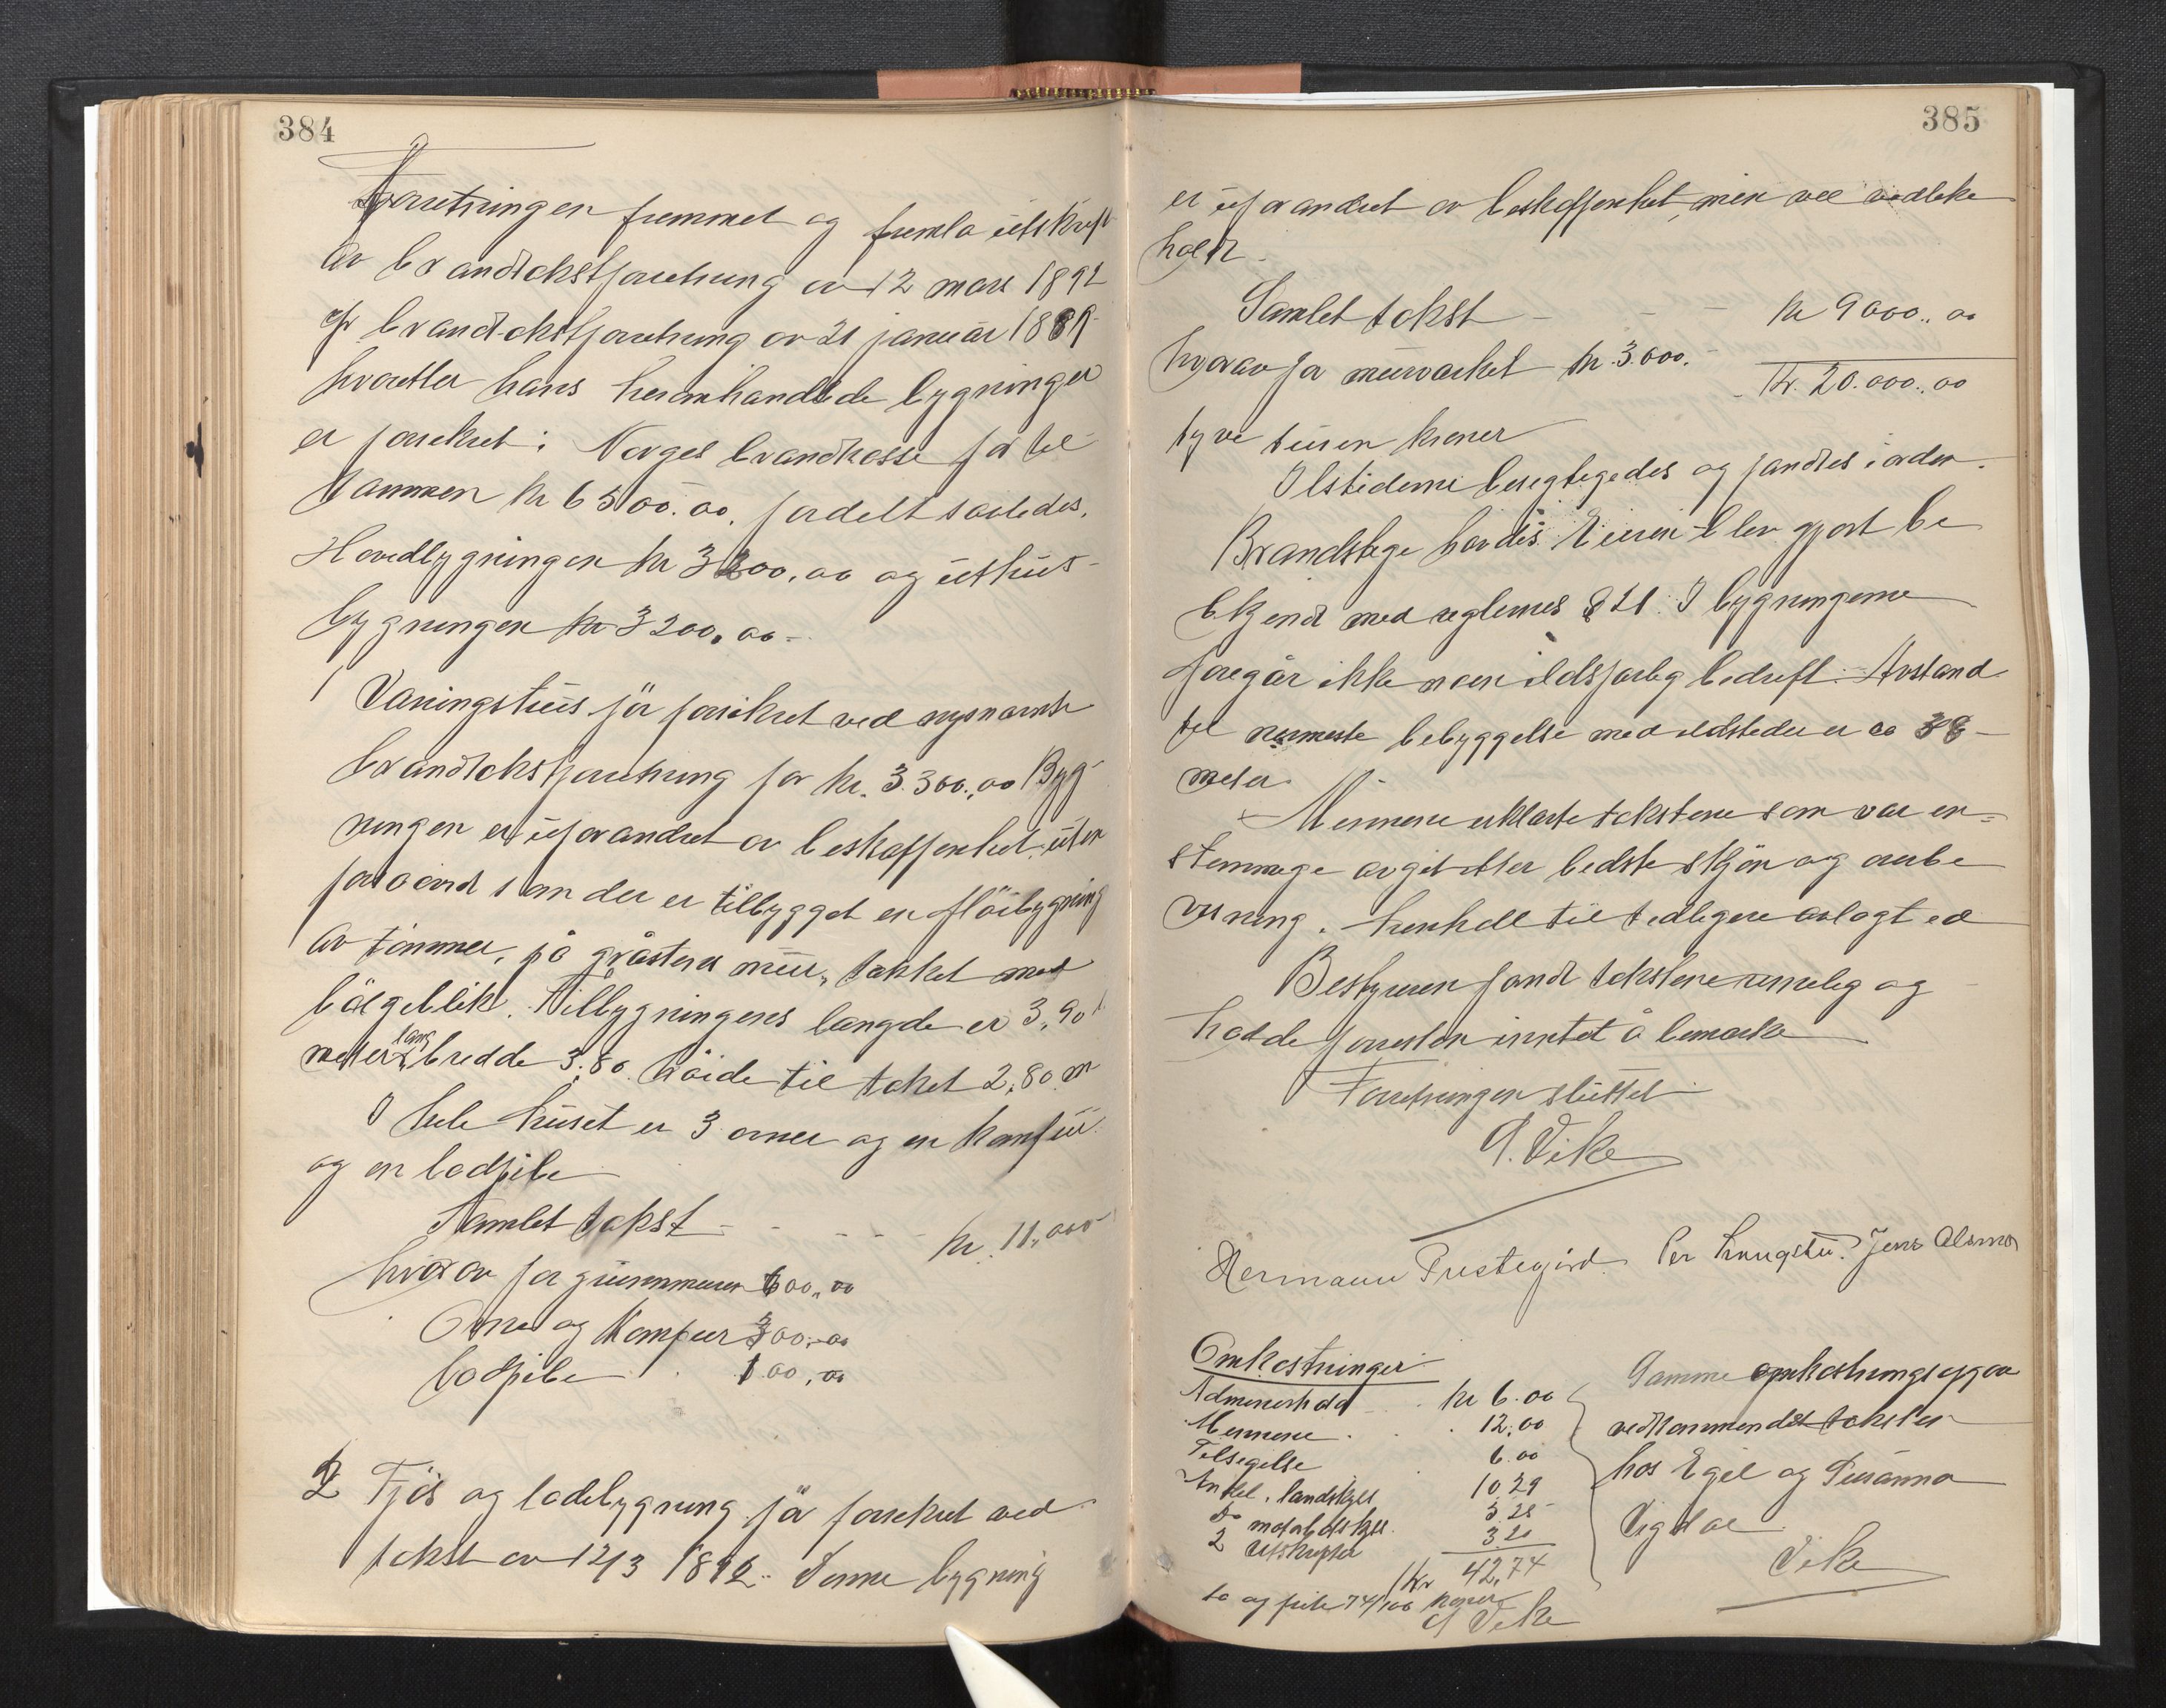 384
Forretningen fremmet og fremla utskrift
av brandtakstforretning av 12 mars 1892
og brandtakstforretning av 21 januar 1889
hvorefter hans heromhandlede bygninger
er forsikret i Norges brandkasse for til
sammen kr 6500.00. fordelt saaledes.
Hovedbygningen kr 3300,00 og uthus-
bygningen kr 3200,00 -
1 Vaaningshus før forsikret ved nysnævnte
brandtakstforretning for kr. 3.300.,00 Byg-
ningen er uforandret av beskaffenhet, uten
forsaavidt som der er tilbygget en fløibygning
av tømmer, på gråstens mur, tækket med
bølgeblik. Tilbygningens længde er 3,90
meter lang bredde 3.80. høide til taket 2,80 m
I hele huset er 3 ovner og en komfur
og en bodpibe
Samlet takst - - - - kr. 11,000
hvorav for grunnmuren 600,00
Ovne og Komfur 300,00
bodpibe 100,00
2 Fjøs og ladebygning før forsikret ved
takst av 12/3 1892. Denne bygning
385
er uforandret av beskaffenhet, men vel vedlike
holdt.
Samlet takst - - - kr 9000,,00
hvorav for murverket kr. 3.000. -
Kr. 20.000,,00
tyve tusen kroner
Ilstederne besigtigedes og fandtes i orden.
Brandstige havdes. Eieren blev gjort be
kjendt med reglernes § 21. I bygningerne
foregår ikke noen ildsfarlig bedrift. Avstand
til nærmeste bebyggelse med ildsteder er ca 38
meter.
Mennene erklærte takstene som var en=
stemmige avgit etter bedste skjøn og overbe
visning. henhold til tidligere avlagt ed
Bestyreren fandt takstene rimelig og
hadde forresten inntet å bemerke
Forretningen sluttet
S. Vike
Hermann Prestegård. Per Jens
Omkostninger
kr 6.00
Mennene . . 12,00
Tilsigelse 6.00
landskyss 10,29
Do motorbådskyss. 5.25
2 utskrifter 3.20
Kr 42,74
to og firti 74/100 kroner
S Vike
Samme omkostningsopgave
vedkommende taksten
hos Egil og Susanna
Vigdal
Vike